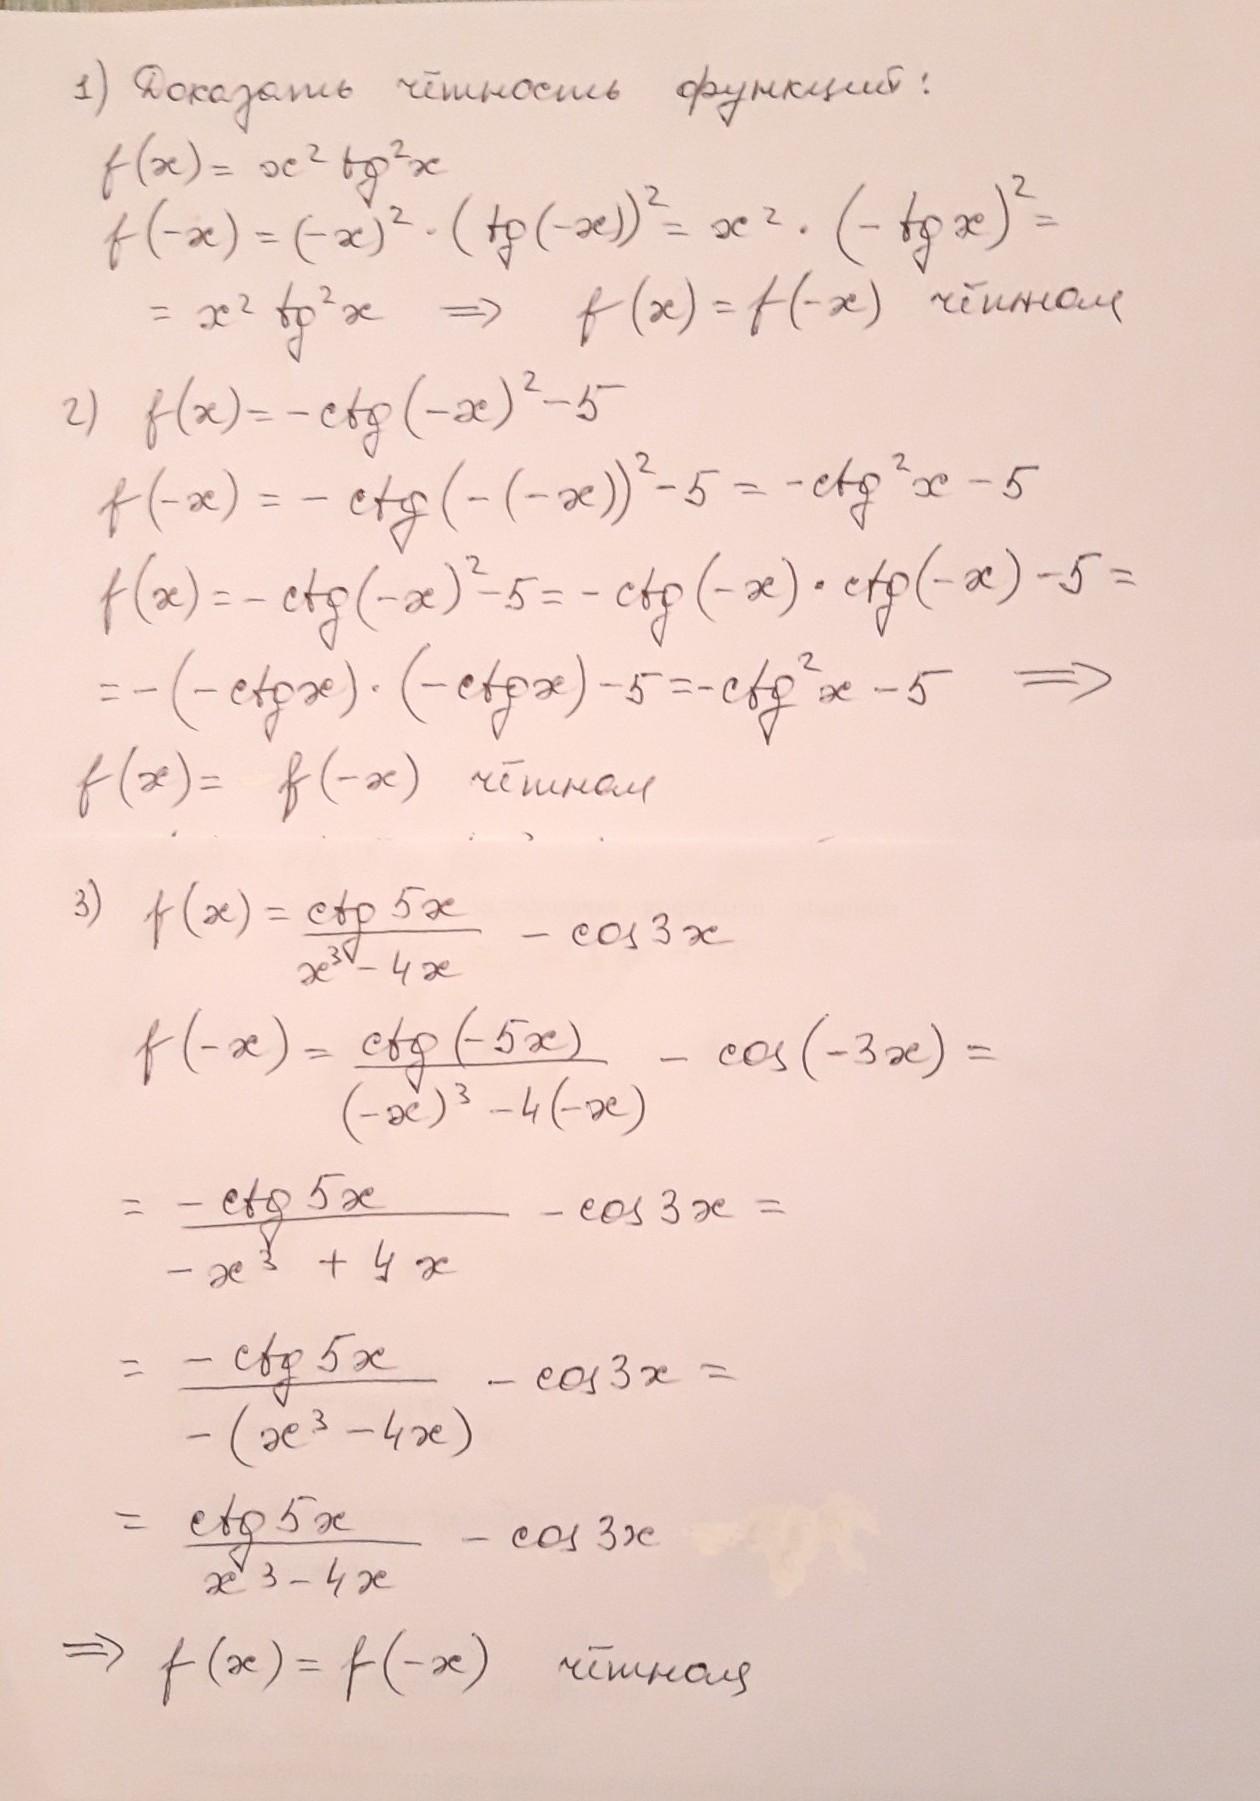 1) Доказать чётность функций:
f(x) = x² tg²x
f(-x) = (-x)² · (tg(-x))² = x² · (-tgx)² =
= x² tg²x ⟹ f(x) = f(-x) чётная
2) f(x) = -ctg(-x)² - 5
f(-x) = -ctg(-(-x))² - 5 = -ctg²x - 5
f(x) = -ctg(-x)² - 5 = -ctg(-x) · ctg(-x) - 5 =
= -(-ctgx) · (-ctgx) - 5 = -ctg²x - 5 ⟹
f(x) = f(-x) чётная
3) f(x) = ctg 5x / (x³ - 4x) - cos 3x
f(-x) = ctg(-5x) / ((-x)³ - 4(-x)) - cos(-3x) =
= -ctg 5x / (-x³ + 4x) - cos 3x =
= -ctg 5x / (-(x³ - 4x)) - cos 3x =
= ctg 5x / (x³ - 4x) - cos 3x
⟹ f(x) = f(-x) чётная